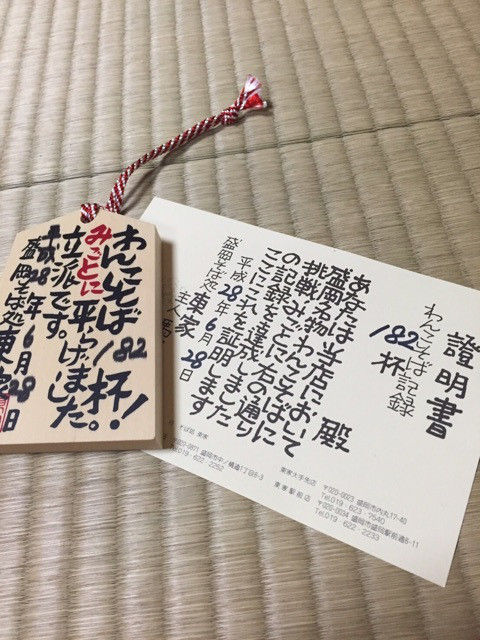 わんこそば182杯！
みごとに平らげました。
立派です。
平成28年6月28日
盛岡そば処東家
證明書
わんこそば記録
182杯
殿
あなたは当店において
盛岡名物わんこそばに
挑戦みごと右の通り
の記録を達成しました
ここにこれを証明します
平成28年6月28日
盛岡そば処東家
主人
そば処 東家
〒020-0871 盛岡市中ノ橋通1丁目8-3
Tel.019・622・2252
東家大手先店 〒020-0023 盛岡市内丸17-40
Tel.019・623・7540
東家駅前店 〒020-0034 盛岡市盛岡駅前通8-11
Tel.019・622・2233